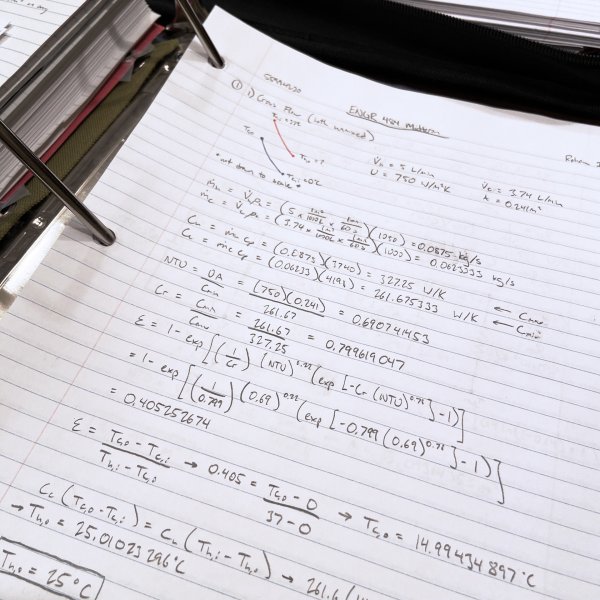 ENGR 484 Midterm
① 1) Cross Flow (both unmixed)
*not drawn to scale*
V̇h = 5 L/min
V̇c = 3.74 L/min
U = 750 W/m²K
A = 0.241m²
ṁh = V̇hρh = (5 × 1m³/1000L × 1min/60s)(1050) = 0.0875 kg/s
ṁc = V̇cρc = (3.74 × 1m³/1000L × 1min/60s)(1000) = 0.0623333 kg/s
Ch = ṁh Cp = (0.0875)(3740) = 327.25 W/K ← Cmax
Cc = ṁc Cp = (0.06233)(4198) = 261.675333 W/K ← Cmin
NTU = UA/Cmin = (750)(0.241)/261.67 = 0.690741453
Cr = Cmin/Cmax = 261.67/327.25 = 0.799619047
ε = 1 - exp[(1/Cr)(NTU)^0.22 (exp[-Cr (NTU)^0.78] - 1)]
= 1 - exp[(1/0.799)(0.69)^0.22 (exp[-0.799 (0.69)^0.78] - 1)]
= 0.405252674
ε = Tc,o - Tc,i / Th,i - Tc,i → 0.405 = Tc,o - 0 / 37 - 0 → Tc,o = 14.99434897°C
Cc (Tc,o - Tc,i) = Ch (Th,i - Th,o) → 261.6
→ Th,o = 25.01023296°C
Th,o = 25°C